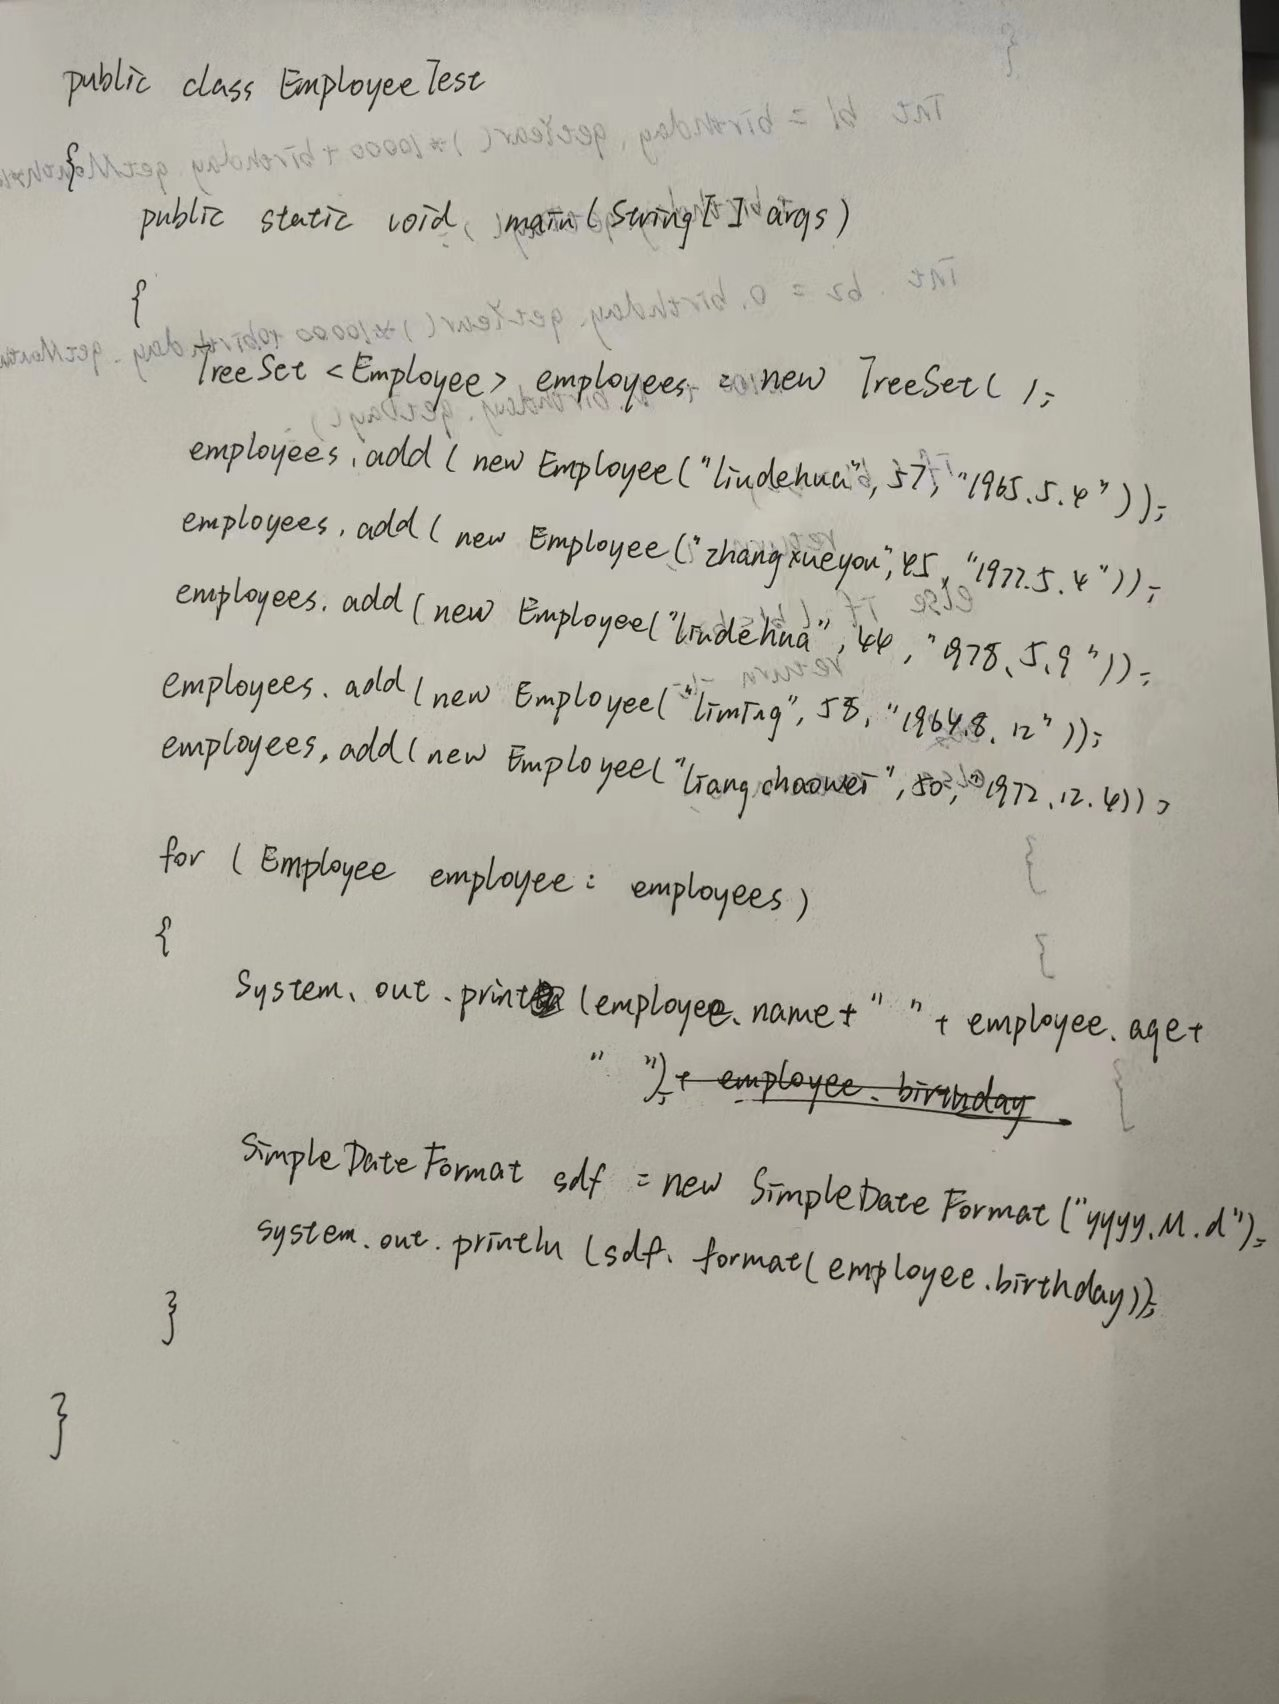 public class EmployeeTest
{
public static void main(String[] args)
{
TreeSet <Employee> employees = new TreeSet();
employees.add(new Employee("liudehua", 57, "1965.5.4"));
employees.add(new Employee("zhangxueyou", 45, "1977.5.4"));
employees.add(new Employee("liudehua", 44, "1978.5.9"));
employees.add(new Employee("liming", 58, "1964.8.12"));
employees.add(new Employee("liangchaowei", 50, "1972.12.4));
for (Employee employee : employees)
{
System.out.print(employee.name+" "+employee.age+
" ");+ employee.birthday
SimpleDateFormat sdf = new SimpleDateFormat("yyyy.M.d");
system.out.println(sdf.format(employee.birthday));
}
}